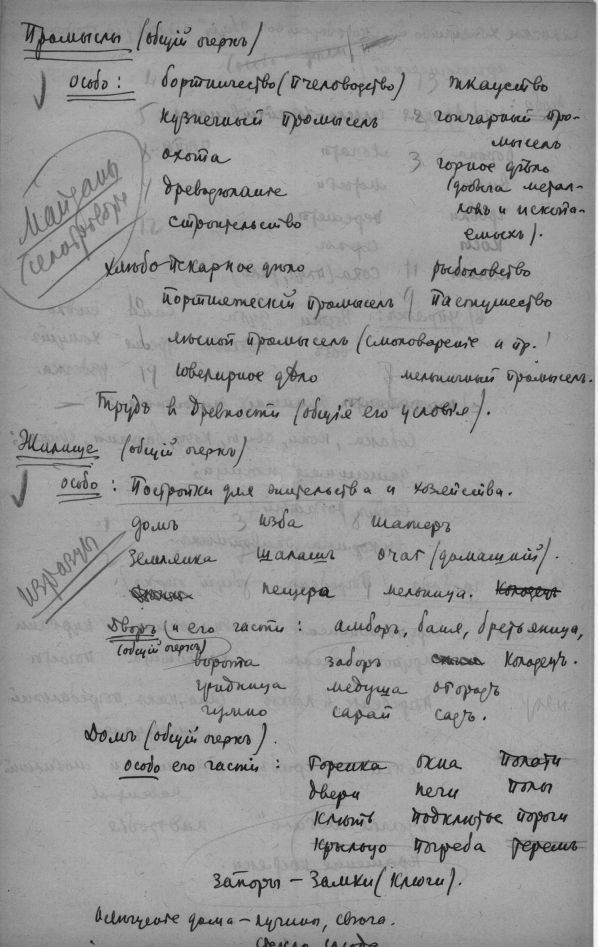 Промыслы (общій очеркъ)
особо: бортничество (пчеловодство) ткачество
кузнечный промыселъ 2 гончарный про-
мыселъ
охота 3 горное дѣло
древодѣланіе (добыча метал-
ловъ и ископа-
емыхъ).
строительство
Майданъ
хлѣбопекарное дѣло рыболовство
портняжескій промыселъ пастушество
лѣсной промыселъ (смоловареніе и пр.
ювелирное дѣло мельничный промыселъ.
Трудъ в древности (общія его условія).
Жилище (общій очеркъ)
особо: Постройки для жительства и хозяйства.
домъ 3 изба 8 шатеръ
землянка шалашъ очаг (домашній).
изразцы
пещера мельница. Колодецъ
Дворъ (и его части: амборъ, баня, бретьяница,
(общій очеркъ)
ворота заборъ Колодецъ.
гридница медуша огородъ
гумно сарай садъ.
Домъ (общій очеркъ).
особо его части: Горенка окна полати
двери печи полы
Клѣть подклѣтье пороги
Крыльцо погреба теремъ
Запоры – Замки (Ключи).
Освѣщеніе дома – лучины, свѣча.